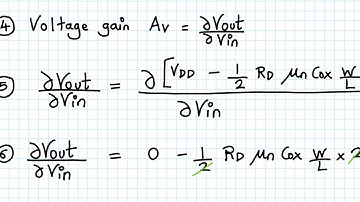 ④ Voltage gain Av = ∂Vout / ∂Vin
⑤ ∂Vout / ∂Vin = ∂[VDD - 1/2 RD μn Cox W/L / ∂Vin
⑥ ∂Vout / ∂Vin = 0 - 1/2 RD μn Cox W/L × 2